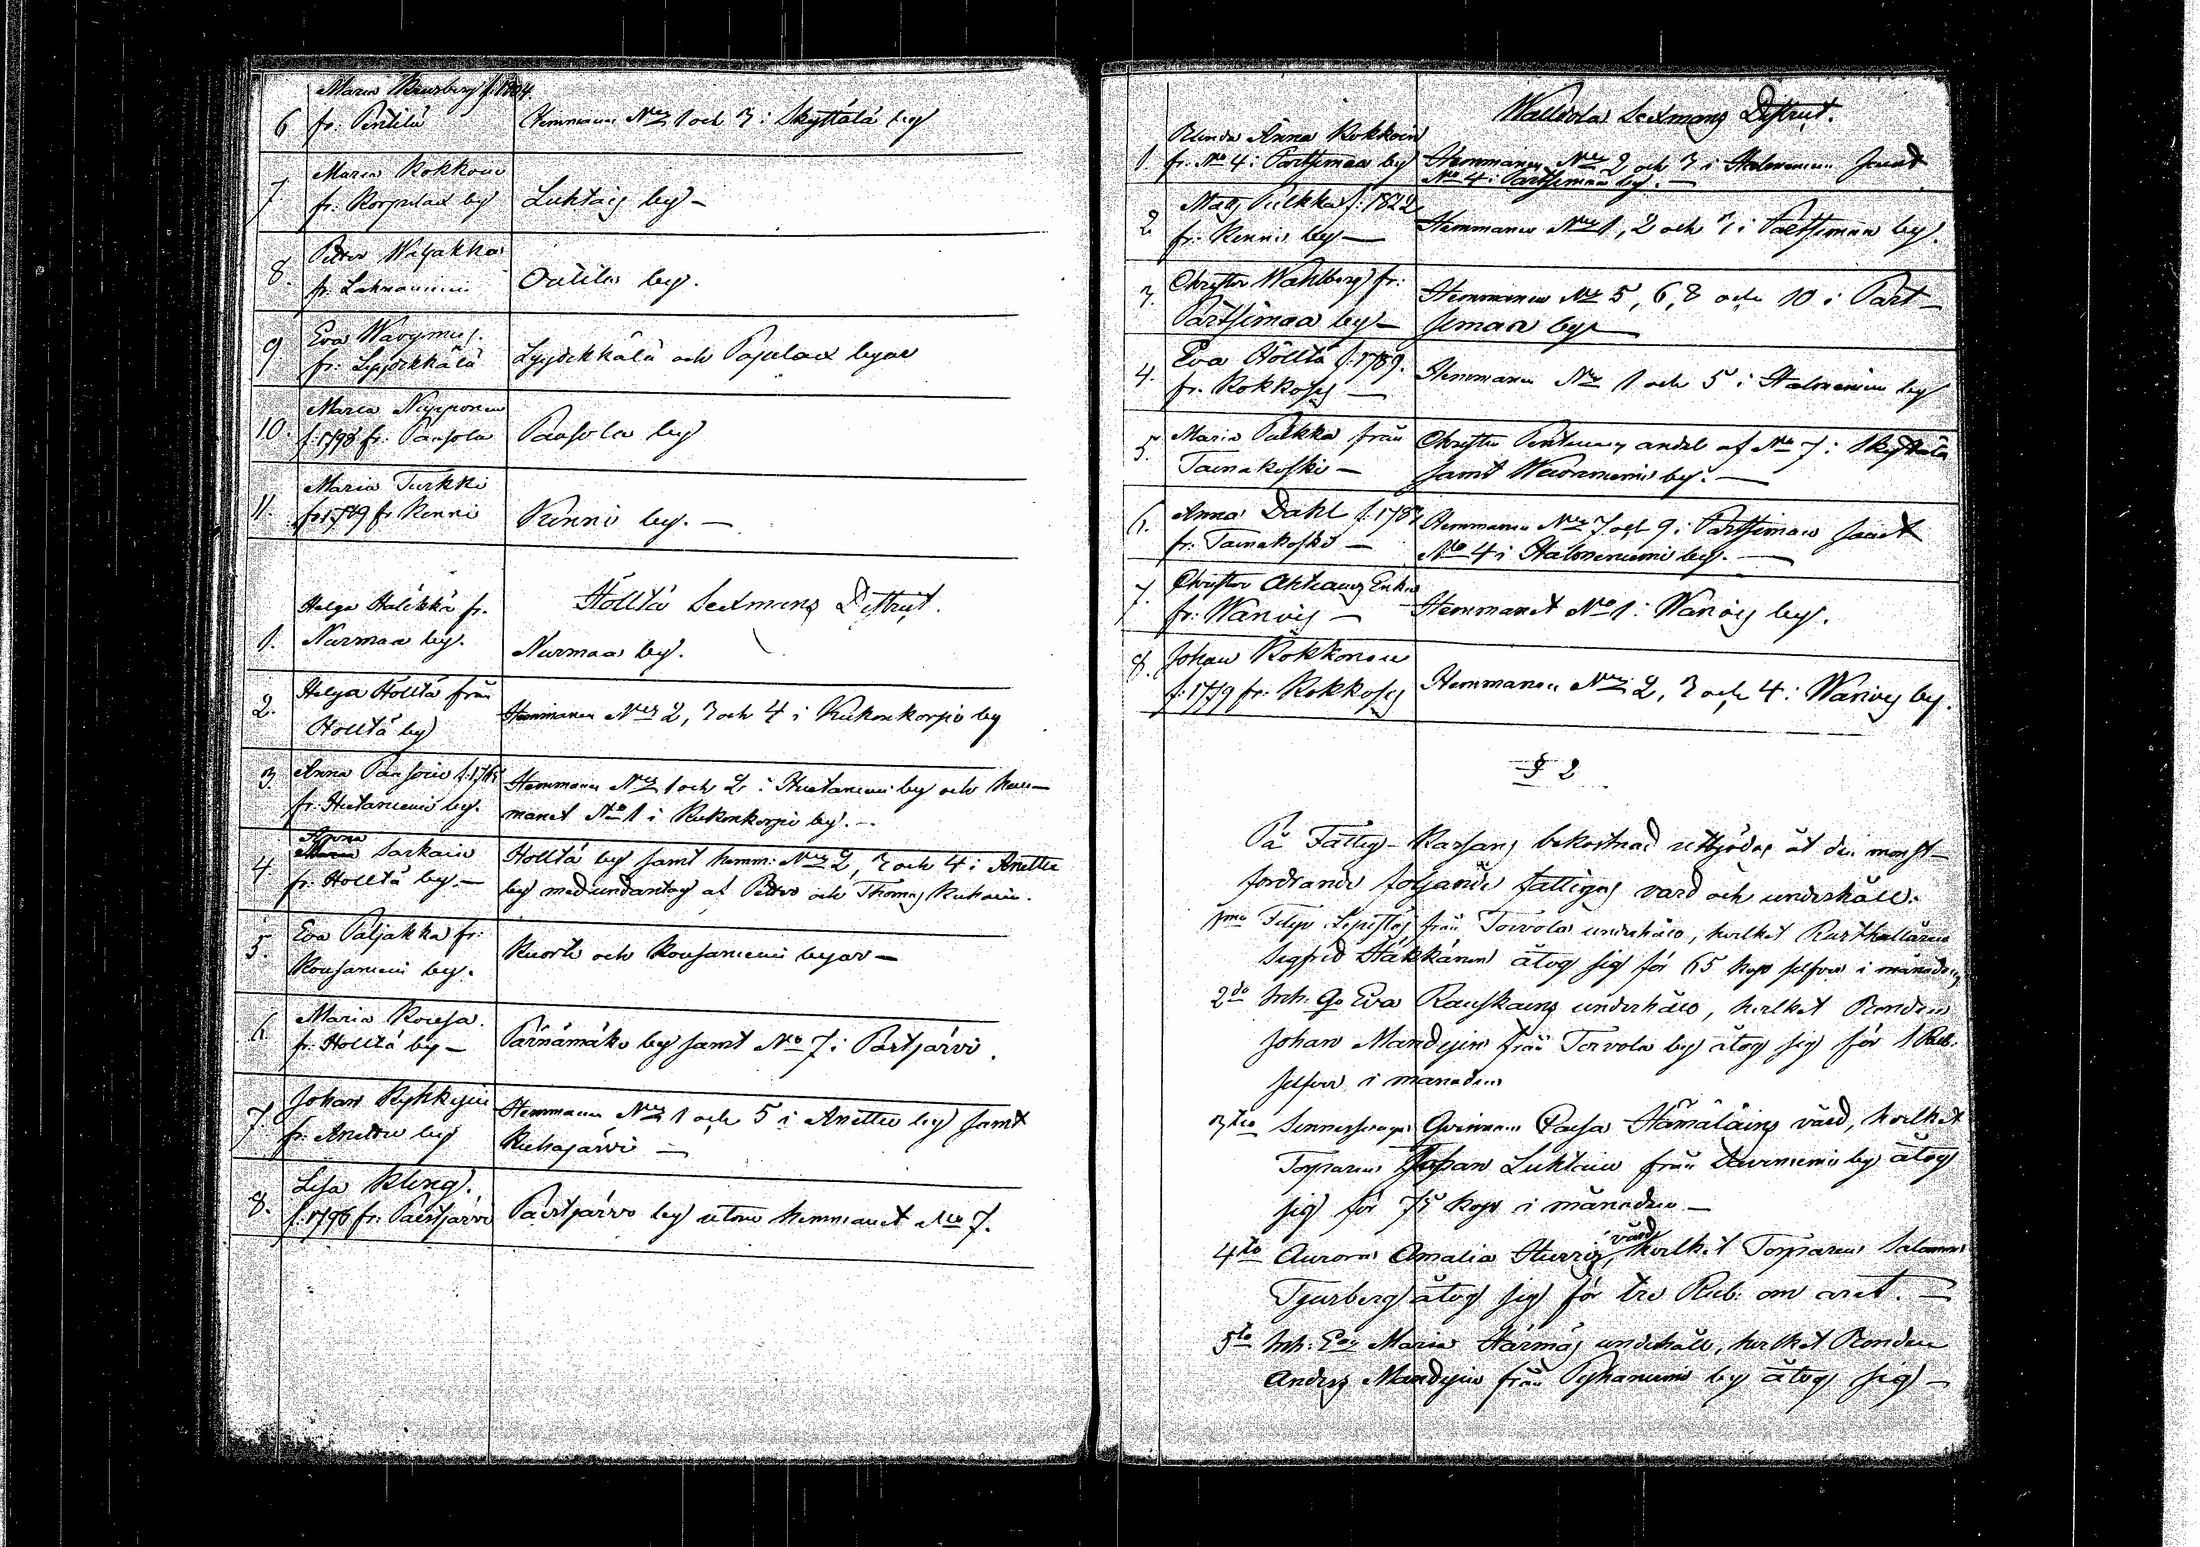 6 fr: Penttilä Hemmanen Nris 1 och 3 i Skyttälä by
7. Maria Kokkoin
fr: Korpulax by Luhtais by –
8. Petter Waljakka
fr. Lahnaniemi Outila by.
9 Eva
fr: Lyijäkkälä Lyijäkkälä och Papulax byar
10. Maria Nupponen
f. 1798 fr. Pausola Pausola by
11. Maria Turkki
f. 1789 fr Kenni Kenni by. –
Hölltä Sexmans Distrut.
1. Helga Halikka fr.
Nurmaa by. Nurmaa by.
2. Helga Hölltä från
Hölltä by Hemmanen Nris 2, 3 och 4 i Kukonkorpi by
3. Anna f. 1765
fr. Hietaniemi by. Hemmanen Nris 1 och 2 i Hietaniemi by och hem–
manet No 1 i Kukonkorpi by. –
4. Anna Sarkain
fr. Hölltä by. – Hölltä by samt hemm: Nris 2, 3 och 4 i Anttu
by med undantag af Petter och Thomas
5. Eva Paljakka fr:
Kousaniemi by. Kuorti och Kousaniemi byar –
6. Maria Kousa.
fr. Hölltä by – Pärnämäki by samt No 7 i Pärtjärvi.
7. Johan Kyhkyin
fr. Anttu by Hemmanen Nris 1 och 5 i Anttu by samt
Ruhajärvi –
8. Lisa Kling.
f. 1796 fr: Pärtjärvi Pärtjärvi by utom hemmanet No 7.
Wallivola Sexmans Distrut.
1. Anna Kokkoin
fr. No 4 i Partsimaa by Hemmanen Nris 2 och 3 i Halmeniemi samt
No 4 i Partsimaa by. –
2 Matts Pulkka f. 1822
fr. Kenni by – Hemmanen Nris 1, 2 och 3 i Partsimaa by.
3. Christer Wahlberg fr:
Partsimaa by – Hemmanen Nris 5, 6, 8 och 10 i Part–
simaa by –
4. Eva Hölltä f. 1789.
fr. Kokkois – Hemmanen Nris 1 och 5 i Halmeniemi by
5. Maria Pulkka från
Tainakoski – Christer andel af No 7 i Skyttälä
samt by. –
6. Anna Dahl
fr: Tainakoski – Hemmanen Nris 7 och 9 i Partsimaa samt
No 4 i Halmeniemi by. –
7. Christer Ahtiains Enka
fr: Wänvis – Hemmanet No 1 i Wänvis by.
8. Johan Kokkonen
f. 1779 fr: Kokkois Hemmanen Nris 2, 3 och 4 i Wänvis by.
§ 2
På Fattig-Kassans bekostnad utbjödos åt den minst–
fordrande följande fattigas vård och underhåll.
1mo från Toivola underhåll, hvilket Rusthållaren
Sigfrid Häkkänen åtog sig för 65 kop silfver i månaden
2do Inh: Qv Eva Rauskains underhåll, hvilket Bonden
Johan Mandyin från Toivola by åtog sig för 1 Rub.
silfver i månaden
3tio Qvinnan Hämäläins vård, hvilket
Torparen Johan Luhtain från by åtog
sig för 75 kop i månaden –
4to Aurora Amalia vård, hvilket Torparen Salomon
Tjurberg åtog sig för tre Rub. om året. –
5to Inh: Maria Härmäs underhåll, hvilket Bonden
Anders Mandyin från Pyhäniemi by åtog sig –